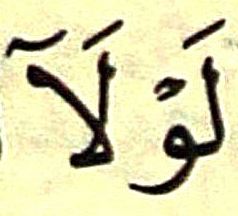 لَوْلَآ